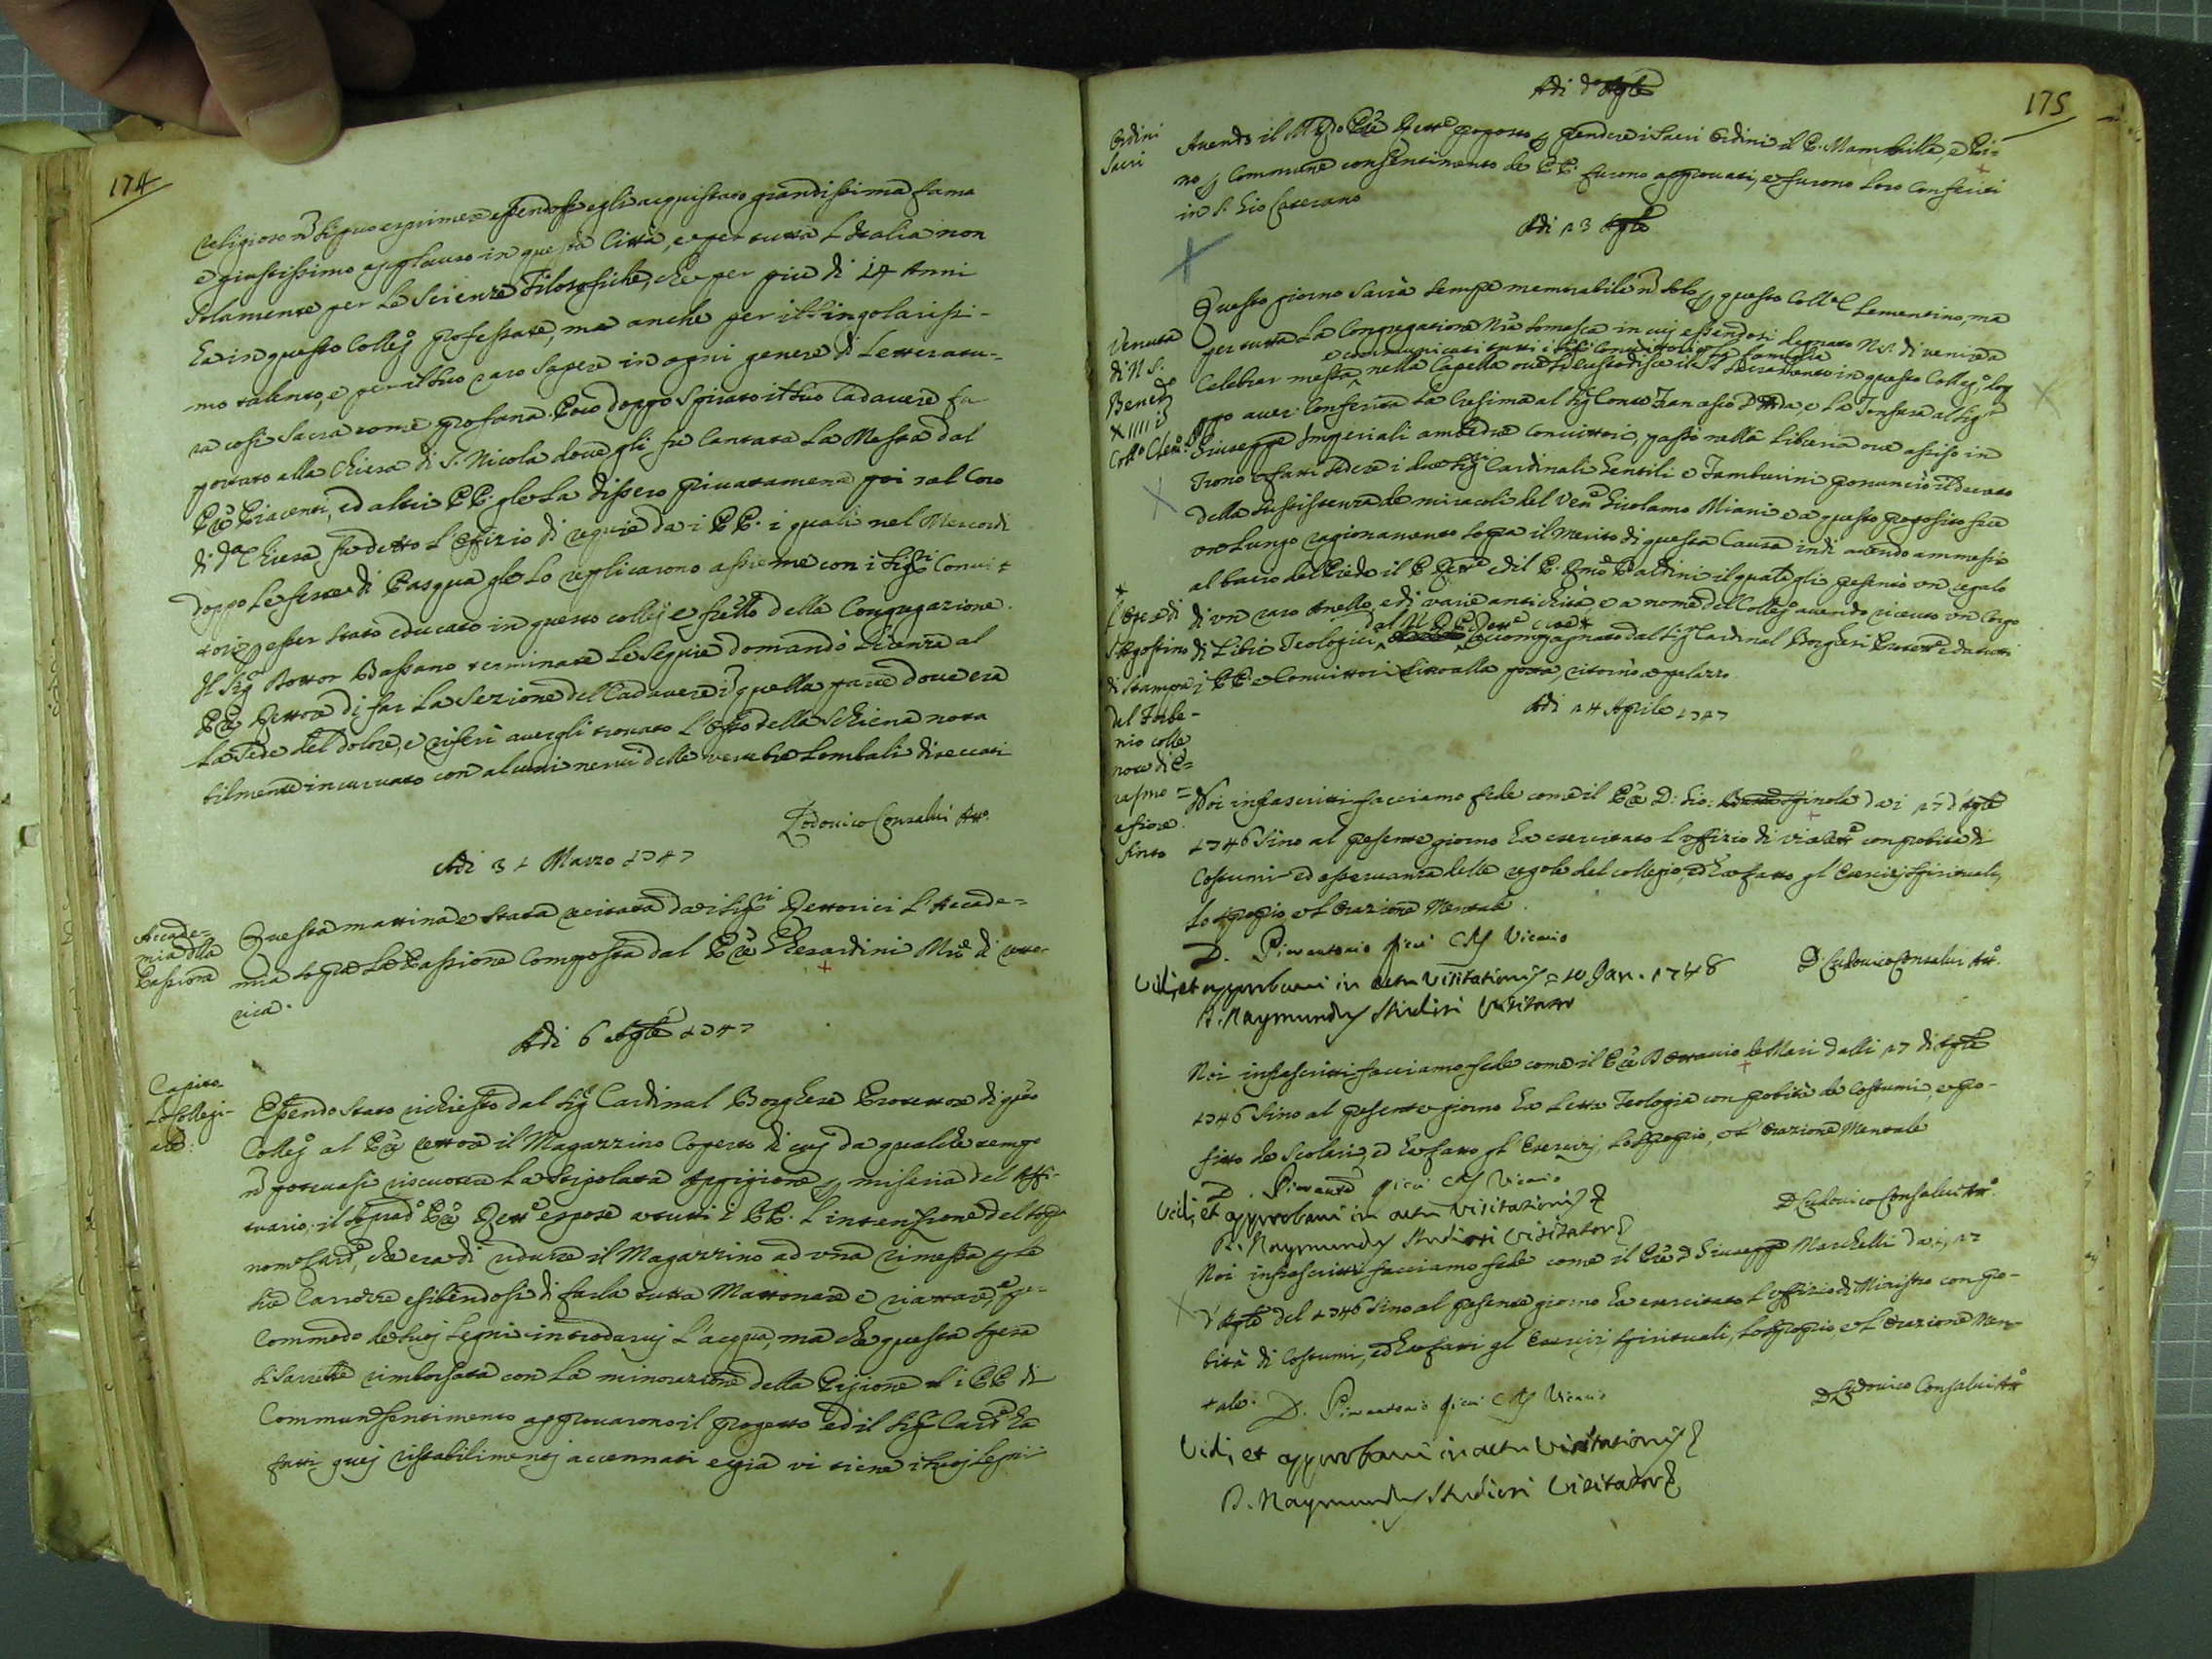 174
religioso nõ si puo esprimere essendosi egli acquistato grandissima fama
e giustissimo applauso in questa Città, e per tutta L'Italia non
solamente per Le Scienze Filosofiche, che per piu di 14 Anni
ha in questo Colleg° professate, ma anche per il singolarissi-
mo talento, e per il suo raro Sapere in ogni genere di Letteratu-
ra cosi Sacra come profana. Poco doppo Spirato il suo Cadavere fu
portato alla Chiesa di S. Nicola dove gli fu Cantata La Messa dal
Prē Piacenti, ed altri PP. gle La dissero privatamente poi nel Coro
di dª Chiesa fu detto L'Offizio di requie da i PP. i quali nel Mercordi
doppo Le feste di Pasqua gle Lo replicarono assieme con i Sigri Convit
tori p esser stato educato in questo colleg° e frutto della Congregazione.
Il Sigr Dottor Bassano terminate Le Sequie domandò Licenza al
Prē Rettore di far La Sezione del Cadavere in quella parte dove era
La Sede del dolore, e riferì avergli trovato L'Osso della Schiena nota
bilmente incurvato con alcuni nervi delle vertebre Lombali diseccati
Lodovico Consalvi Att°.
Adi 31 Marzo 1747
Accade=
mia della
Passione
Questa mattina e stata recitata da i Sigri Rettorici L'Accade=
mia sopra La Passione Composta dal Prē Gherardini Mrō di retto-
rica.
Adi 6 Aple 1747
Capito
Lo Collegi-
ale:
Essendo stato richiesto dal Sigr Cardinal Borghese Protettore di qsto
Colleg° al Prē rettore il Magazzino Coperto di cuj da qualche tempo
nõ potevasi riscuotere La Stipolata Appigione p miseria del Affi-
tuario; il sopradº Prē Rettē espose a tutti i PP. L'intenzione del sopr
nomº Cardˡᵉ, che era di ridurre il Magazzino ad una rimessa p le
sue Carozze esibendosi di farla tutta Mattonare e riattare, e per
Commodo de suoj Legni introdurvj L'acqua, ma che questa spesa
Li sarebbe rimborsata con La minorazione della Pigione. i PP di
Commun sentimento approvarono il progetto ed il Sigr Cardˡᵉ ha
fatti quej ristabilimentj accennati e già vi tiene i suoj Legni
175
Adi dº Aple
Ordini
Sacri
Avendo il M Rdo Prē Rettē proposto p prendere i Sacri Ordini il P. Mambilla, e Pi-
no p Commune consentimento de PP. furono approvati, e furono Loro Conferiti
in S. Gio Laterano
Adi 13 Aple
Venuta
di N S.
Benedº
XIIII i
Collº Clemº
Questo giorno sarà sempre memorabile nõ solo p questo Coll° Clementino, ma
per tutta La Congregazione Nrā Somasca in cuj essendosi degnato N.S. di venire a
e communicati tutti i Sigri Convittori e La famiglia
Celebrar messa nella Capella ove si custodisce il SS Sacramento in questo Colleg°, dop
ppo aver Conferita La Cresima al Sigr Conte Francesco D'Adda, e La Tonsura al Sigr
Giuseppe Imperiali ambedue Convittori, passò nella Libreria ove assiso in
Trono e fatti sedere i due Sigri Cardinali Gentili e Tamburini pronunciò il Decreto
della sussistenza de miracoli del Venē Girolamo Miani e a questo proposito fece
un Lungo ragionamento sopra il Merito di questa Causa indi avendo ammessi
al bacio del Piede il P. Rettē ed il P. Rmō Baldini il quale gli presentò un regalo
di un raro Anello, e di varie antichità, e a nome del Colleg° avendo ricevuto un Corpo
dal M. R. P. Rettē cioè +
di Libri Teologici, accompagnato dal Sigr Cardinal Borghesi Protettē e da tutti
i PP. e Convittori sino alla porta, ritornò a palazzo.
+
L'Opere di
S. Agostino
di Stampa
del Frobe-
nio colle
note di E=
rasmo =
Adi 14 Aprile 1747
Noi infrascritti facciamo fede come il Prē D: Gio: Spinola da i 17 d'Aple
1746 sino al presente giorno ha esercitato L'offizio di vice Rettē con probità di
Costumi ed osservanza delle regole del collegio, ed ha fatto gl'Esercizj Spirituali,
Lo spropio e L'Orazione Mentale.
D. Pierantonio Ricci CRS Vicario
D. Ludovico Consalvi Att°.
Vidi, et approbavi in actu Visitationis 20 Jan. 1748
D. Raymundus Studiosi Visitator
Noi infrascritti facciamo fede come il Prē D Ottavio de Mari dalli 17 di Aple
1746 sino al presente giorno ha Letto Teologia con probità de Costumi, e pro-
fitto de Scolari, ed ha fatto gl'Esercizj, Lo spropio, e L'Orazione Mentale
D. Pierantō Ricci CRS Vicario
D Ludovico Consalvi Att°.
Vidi, et approbavi in actu Visitationis
D. Raymundus Studiosi Visitator
Noi infrascritti facciamo fede come il Prē D Giuseppe Marchelli da i 17
d'Aple del 1746 sino al presente giorno ha esercitato L'offizio di Ministro con pro-
bità di Costumi, ed ha fatti gl'Esercizj Spirituali, Lo spropio e L'Orazione Men-
tale.
D. Pierantonio Ricci CRS Vicario
D Ludovico Consalvi Att°
Vidi, et approbavi in actu Visitationis
D. Raymundus Studiosi Visitator